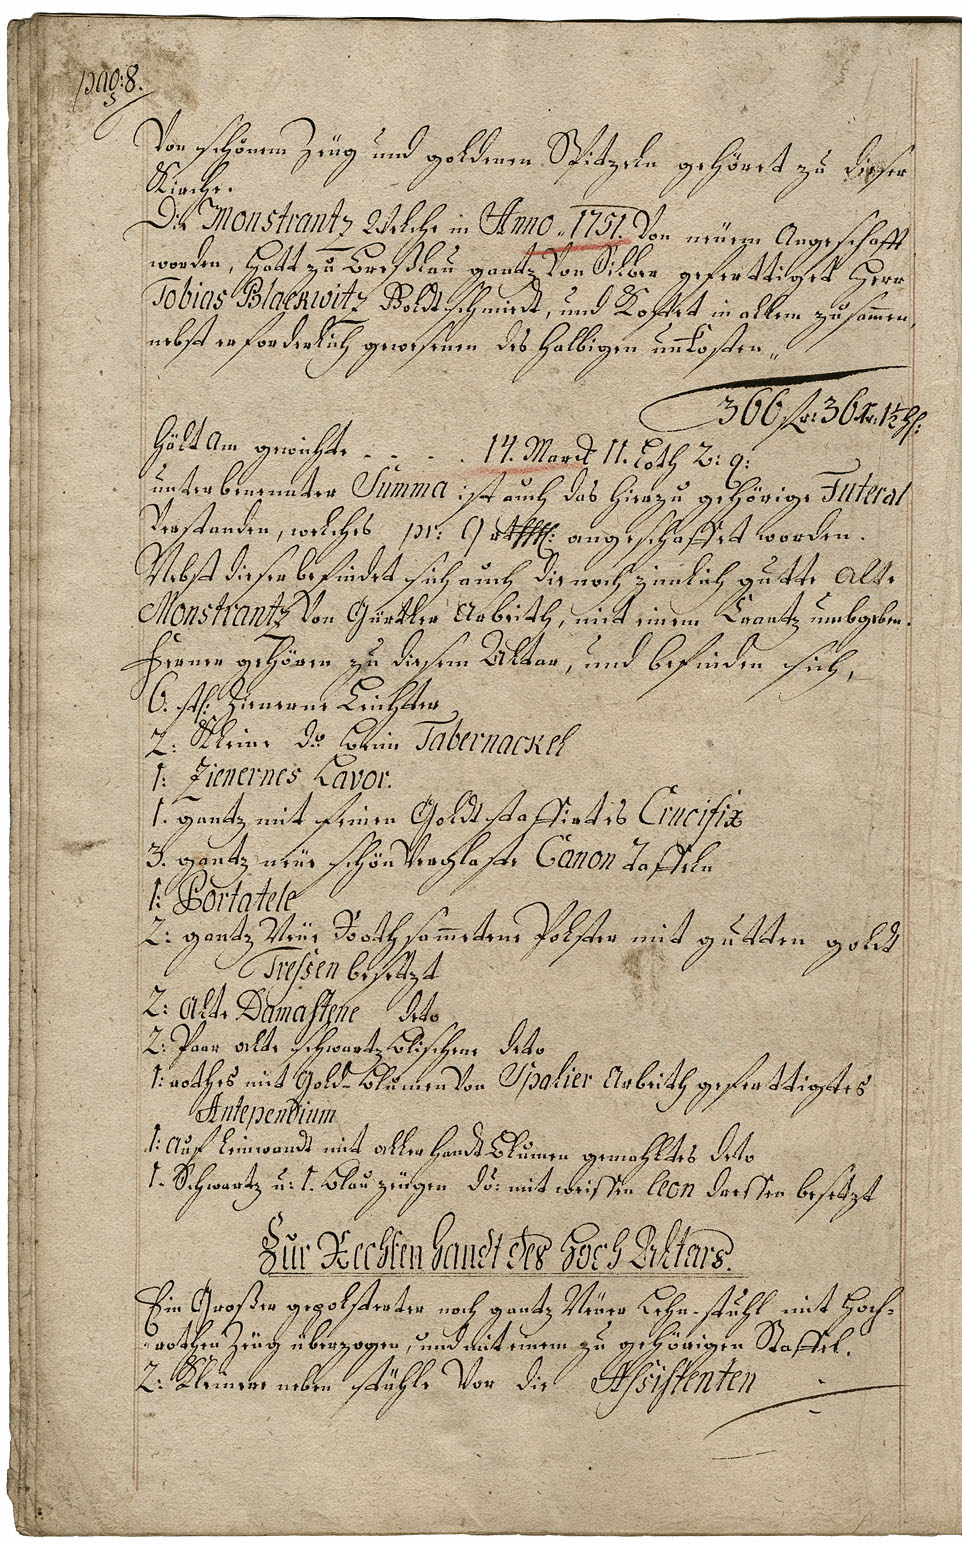 pag: 8.
Von schönem Zeüg und goldenen Spitzeln gehöret zu dieser
Kirche.
Die Monstrantz Welche in Anno 1751. Von neüem Angeschafft
worden, hatt zu Breßlau gantz Von Silber gefertiget Herr
Tobias Blackwitz Goldtschmiedt, und Kostet in allem zusammen,
nebst erforderlich gewesenen deshalbigen unkosten„
366 flr: 36 xr. 1½ hl:
Hält Am gewichte - - - - 14. Marck 11. Loth 2: q:
unter benennter Summa ist auch das hierzu gehörige Futeral
Verstanden, welches pr: 9 angeschaffet worden.
Nebst dieser befindet sich auch die noch zimlich gutte Alte
Monstrantz Von Gürtler Arbeith, mit einem Crantz umbgeben.
Ferner gehören zu diesem Altar, und befinden sich,
6. stk: Zienerne Leichter
2: Kleine do beim Tabernackel
1: Zienernes Lavor.
1. gantz mit feinen Goldt staffirtes Crucifix
3. gantz neüe schön Verglaste Canon Taffeln
1: Portatele
2: gantz Neüe Roth sammetene Polster mit gutten goldt
Tressen besetzt
2: Alte Damastene deto
2: Paar alte schwartz Plischene deto
1: rothes mit Gold-Blumen Von Spalier Arbeith gefertigtes
Antependium
1: Auf Leinwandt mit aller handt Blumen gemahltes deto
1. Schwartz u: 1. Blau zeügen do: mit weissen leon dressen besetzt
Zur Rechten handt des Hoch Altars.
Ein Großer gepolsterter noch gantz Neüer Lehn-stuhl mit Hoch-
rothen Zeüg überzogen, und mit einem zu gehörigen Staffel.
2: Kleinere neben stühle Vor die Assistenten